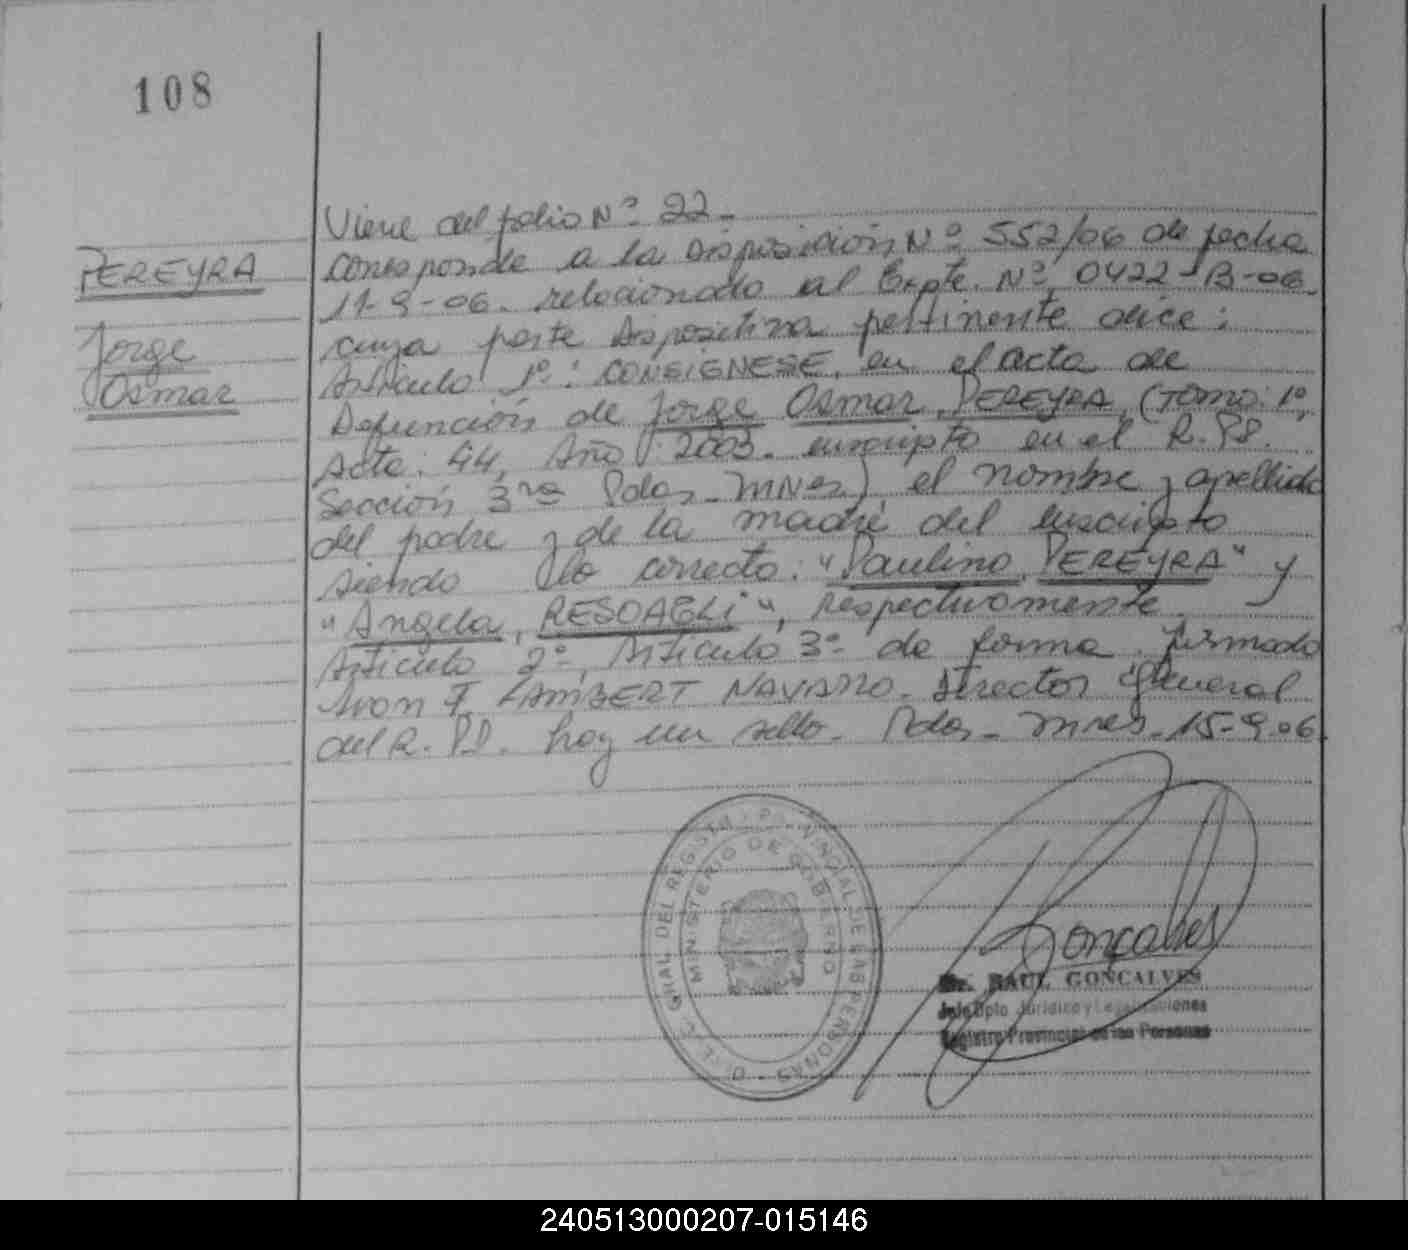 108
PEREYRA
Jorge
Osmar
Viene del folio Nº 22-
corresponde a la Disposición, Nº 552/06 de fecha
11-9-06. relacionado al Expte. Nº 0422-B-06.
cuya parte Dispositiva pertinente dice:
Artículo 1º: CONSIGNESE, en el acta de
Defunción de Jorge Osmar, PEREYRA, (Tomo: 1º,
Acta: 44, Año: 2003. inscripto en el R.PP.
Sección 3ra Pdas-Mnes) el nombre y apellido
del padre y de la madre del inscripto
siendo lo correcto: "Paulino, PEREYRA" y
"Angela, RESOAGLI", respectivamente.
Artículo 2º, Artículo 3º de forma. firmado
Ivon F LAMBERT NAVARRO. Director General
del R.PP. hay un sello. Pdas- Mnes. 15-9-06.
DIREC. GRAL. DEL REGISTRO PROVINCIAL DE LAS PERSONAS
MINISTERIO DE GOBIERNO
Gonçalves
Dr. RAUL GONCALVES
Jefe Dpto Jurídico y Legalizaciones
Registro Provincial de las Personas
240513000207-015146